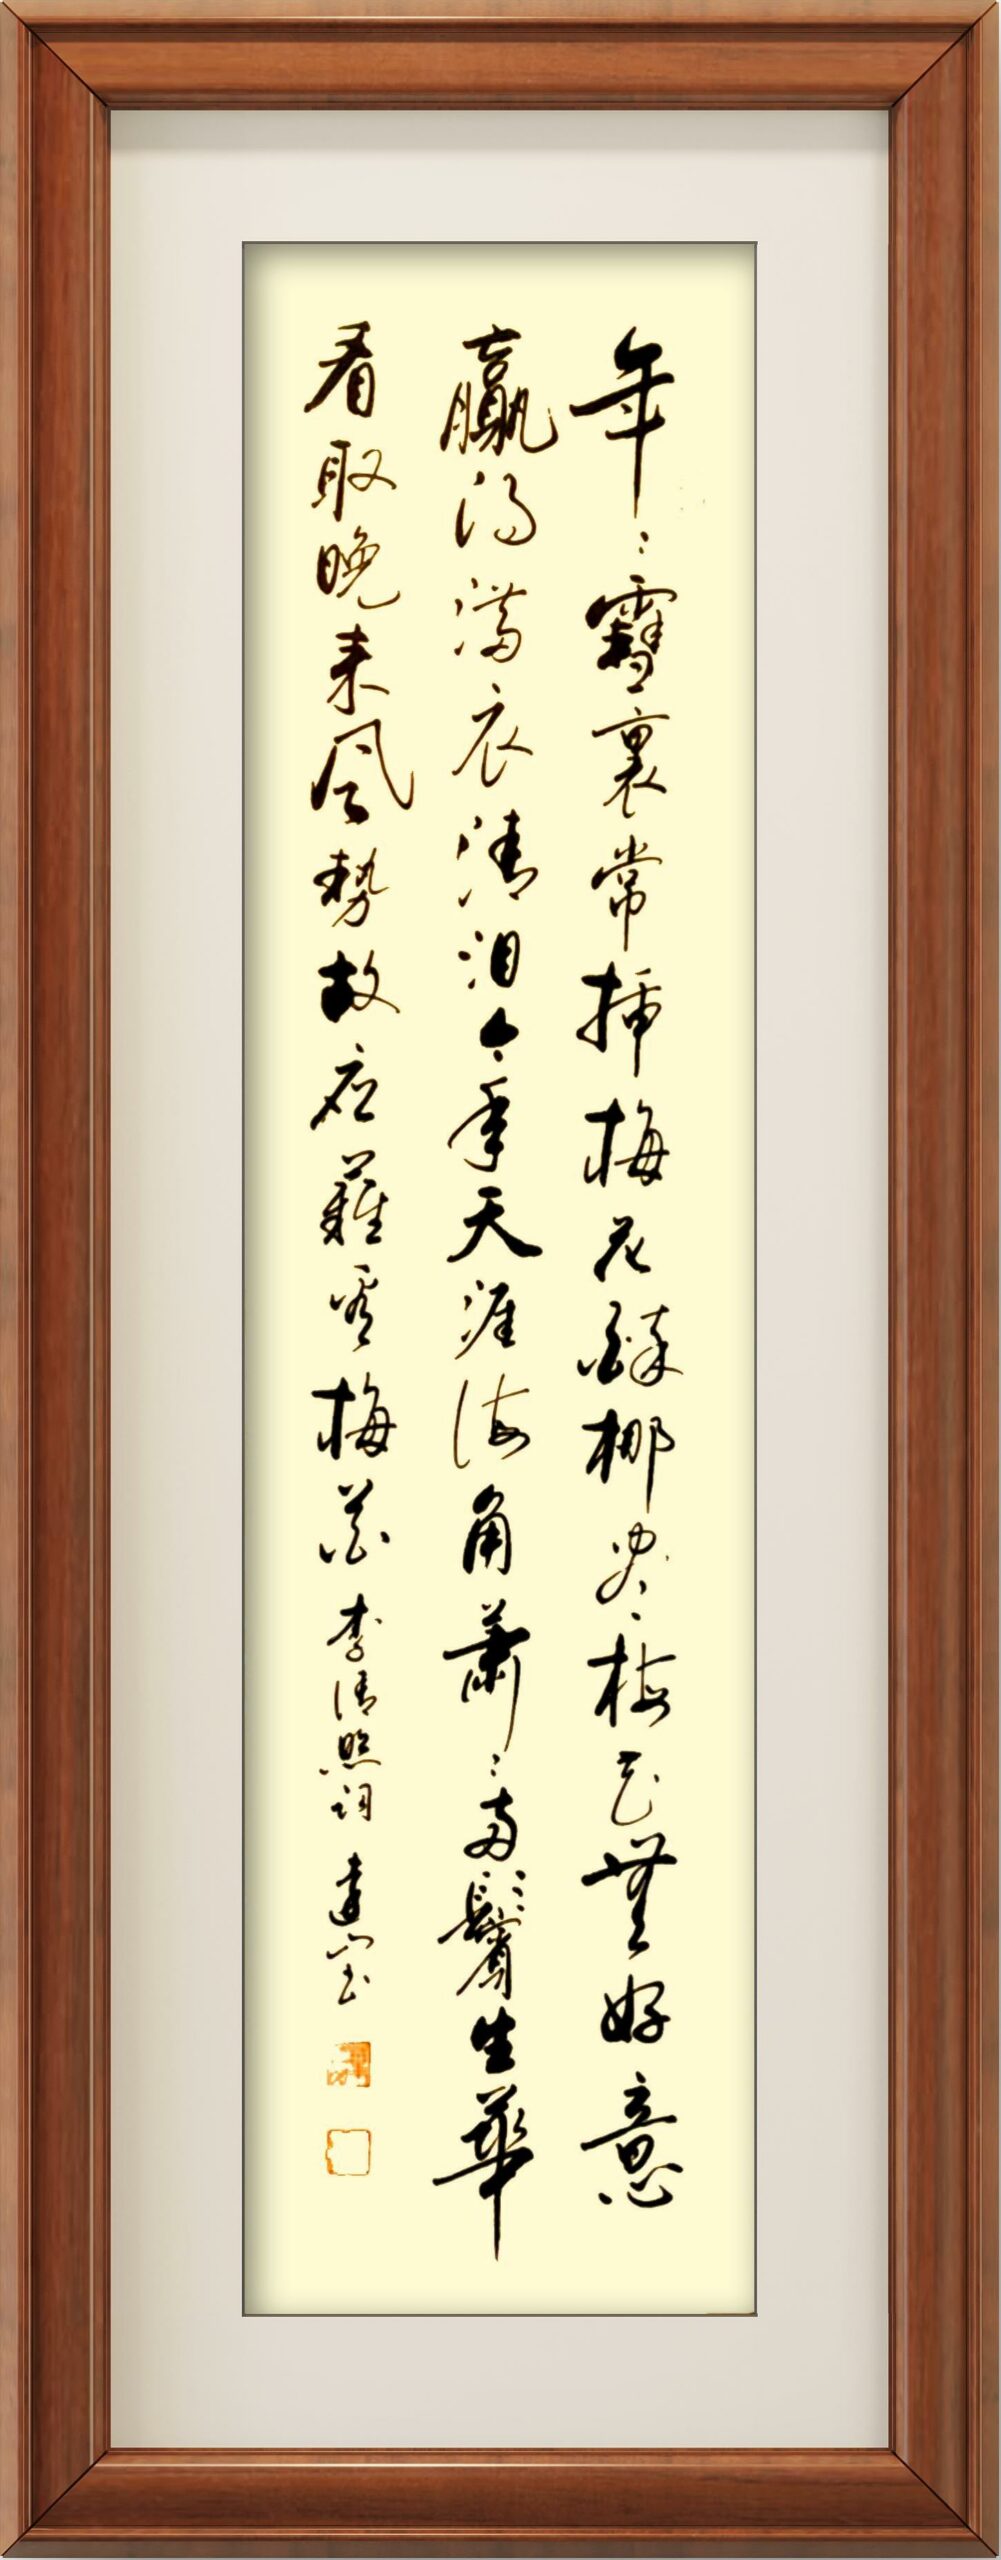 年〻雪裏常插梅花醉挪尽梅花無好意
贏得滿衣清泪今年天涯海角蕭〻兩鬢生華
看取晚来风勢故应難看梅花李清照詞